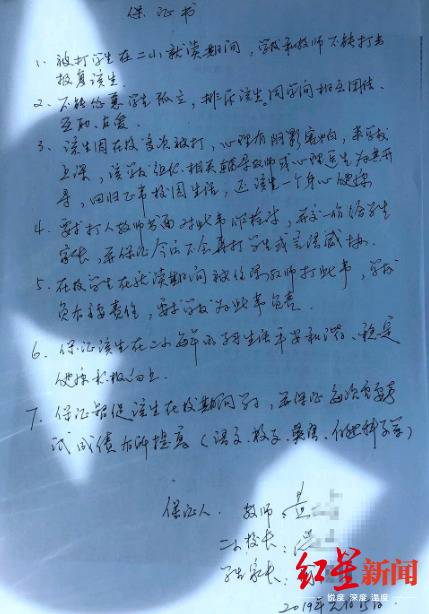 保证书
1、被打学生在二小就读期间，学校和教师不能打击
报复该生。
2、不能怂恿学生孤立，排斥该生。同学间相互团结、
互助、友爱。
3、该生因在校多次被打，心理有阴影害怕，来学校
上课，该学校组织相关辅导教师或心理医生为其开
导，回归正常校园生活，还该生一个身心健康
4、要求打人教师书面对此事作检讨，并交一份给学生
家长，并保证今后不会再打学生或言语威胁。
5、在校学生在就读期间被任课教师打此事，学校
负有主要责任，要求学校为此事负责。
6、保证该生在二小每年的学习生活平安和谐、稳定
健康积极向上。
7、保证督促该生在校期间学习，并保证每次参考考
试成绩有所提高（语文、数学、英语、自然科学等）
保证人 教师：
二小校长：
学生家长：
2019年10月15日
红星新闻
锐度 深度 温度